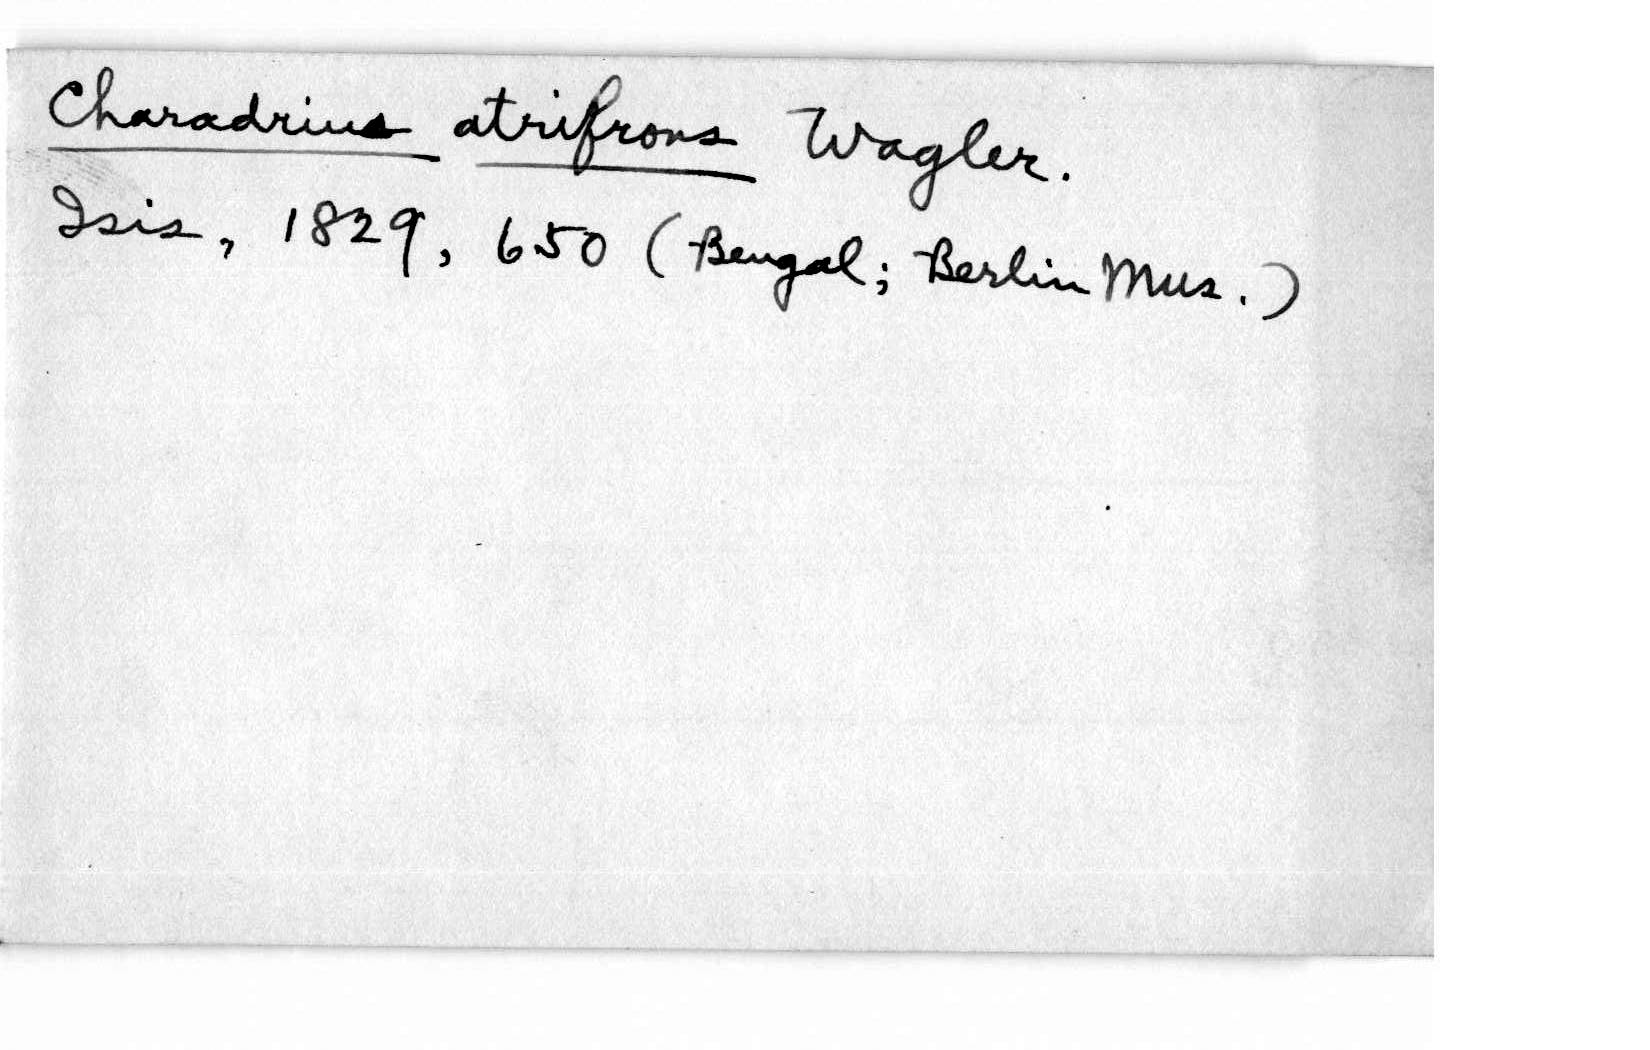 Charadrius atrifrons Wagler.
Isis, 1829, 650 (Bengal; Berlin Mus.)